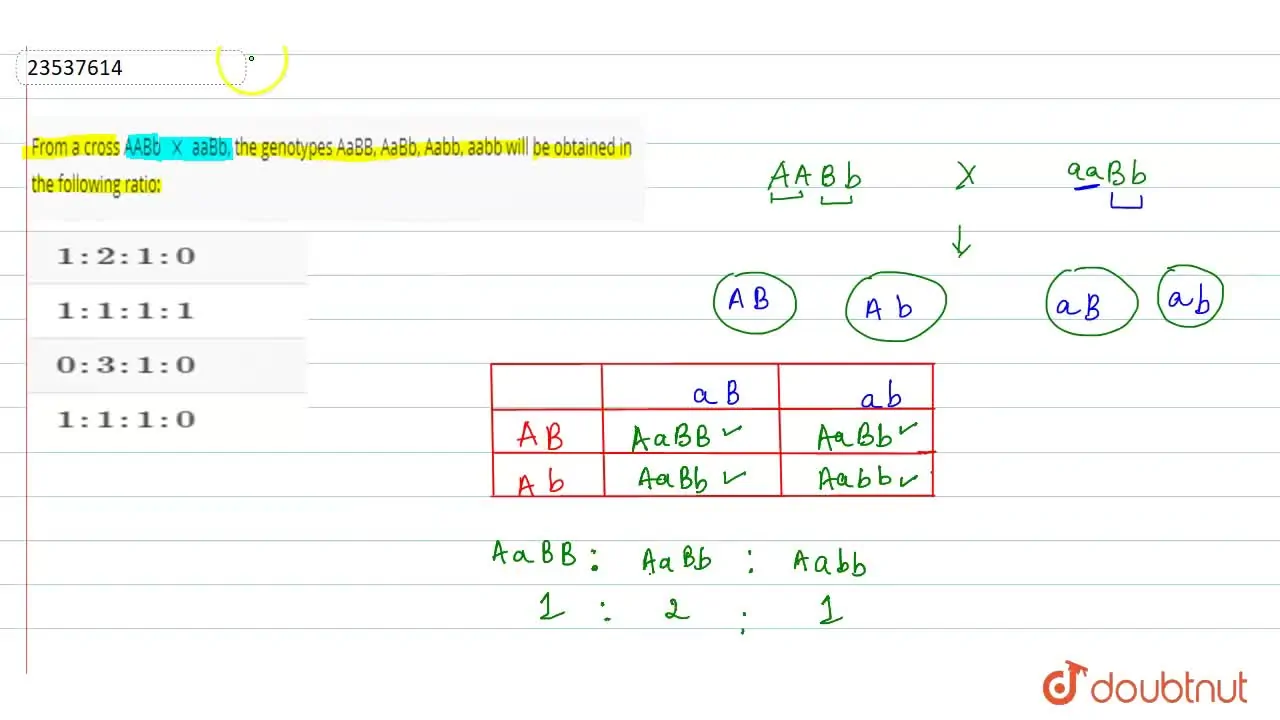 23537614
From a cross AABb X aaBb, the genotypes AaBB, AaBb, Aabb, aabb will be obtained in
the following ratio:
1 : 2 : 1 : 0
1 : 1 : 1 : 1
0 : 3 : 1 : 0
1 : 1 : 1 : 0
AABb X aaBb
AB Ab aB ab
aB ab
AB AaBB AaBb
Ab AaBb Aabb
AaBB : AaBb : Aabb
1 : 2 : 1
doubtnut